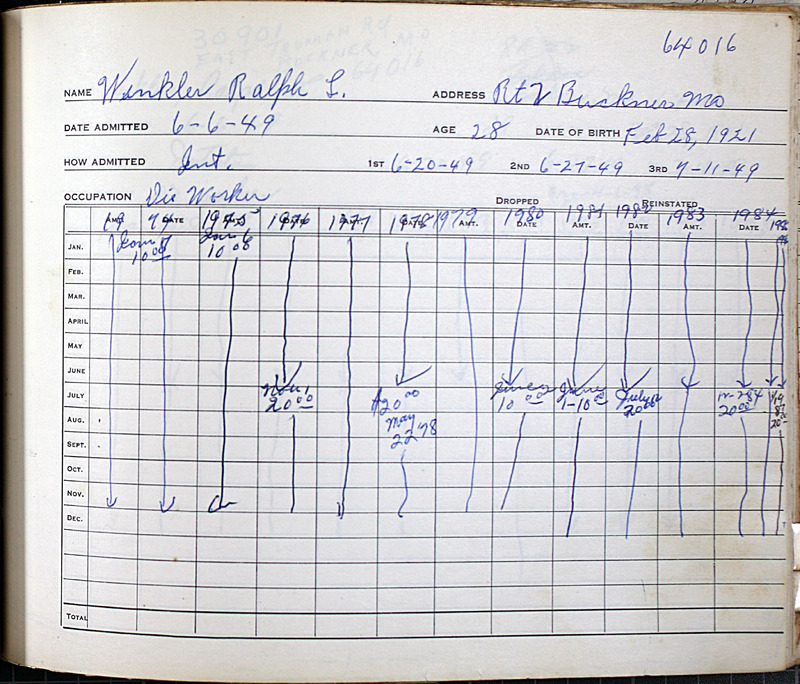 64016
NAME Winkler Ralph L. ADDRESS Rt 2 Buckner Mo
DATE ADMITTED 6-6-49 AGE 28 DATE OF BIRTH Feb 28, 1921
HOW ADMITTED Int. 1ST 6-20-49 2ND 6-27-49 3RD 7-11-49
OCCUPATION Die Worker DROPPED REINSTATED
DATE 1975 1976 DATE 1977 1978 DATE 1979 AMT. 1980 DATE 1981 AMT. 1982 DATE 1983 AMT. 1984 DATE
JAN. 10 00 Jan 6 10 00
FEB.
MAR.
APRIL
MAY
JUNE
JULY 20 00 $20 00 10 00 June 1-10 00 July 20 00 20 00
AUG. May 22 78 20
SEPT.
OCT.
NOV.
DEC.
TOTAL